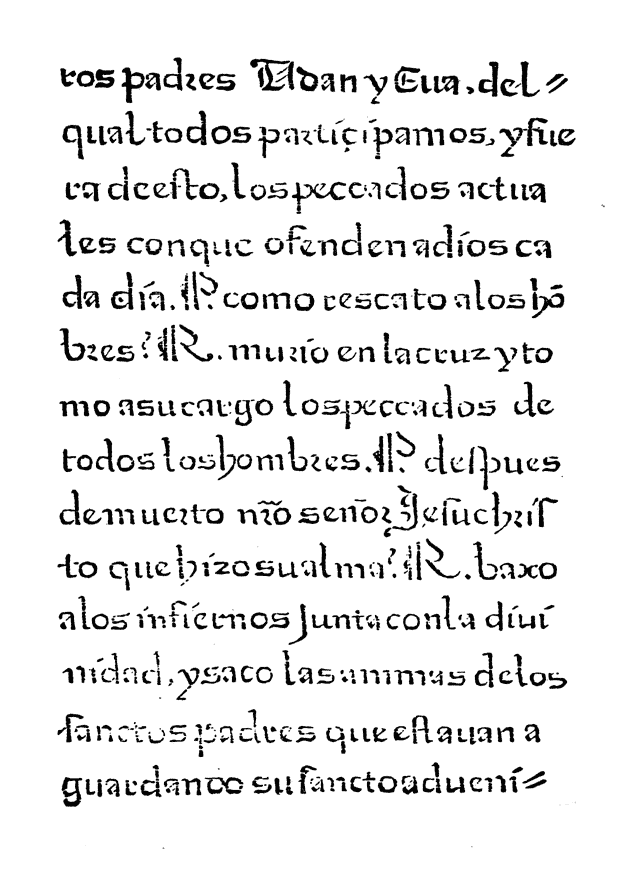 ros padres Adan y Eua, del⸗
qual todos participamos, y fue
ra deesto, los peccados actua
les con que ofenden a dios ca
da día. ¶P. como rescato a los hō
bres? ¶R. murio en la cruz y to
mo a su cargo los peccados de
todos los hombres. ¶P. despues
de muerto nr̄o señor Jesuchris
to que hizo su alma? ¶R. baxo
a los infiernos junta con la diui
nidad, y saco las animas de los
sanctos padres que estauan a
guardando su sancto adueni⸗